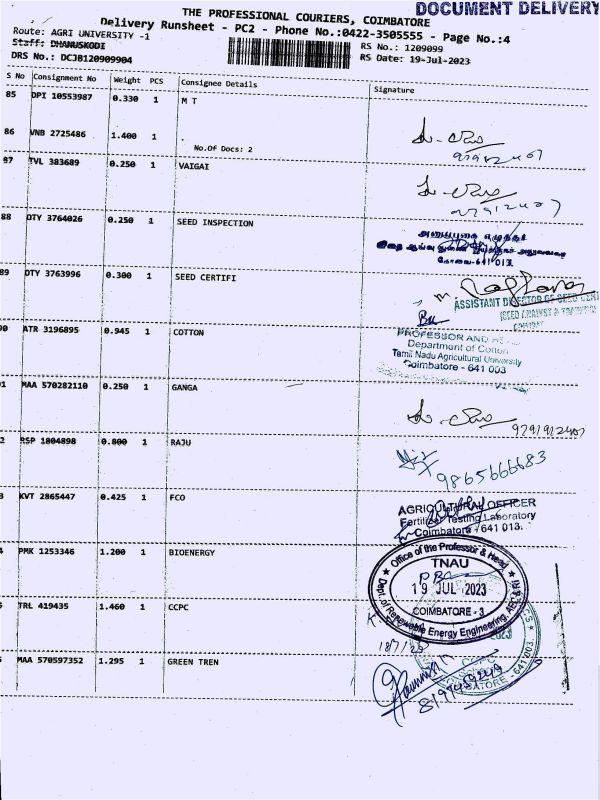 DOCUMENT DELIVERY
THE PROFESSIONAL COURIERS, COIMBATORE
Delivery Runsheet - PC2 - Phone No.:0422-3505555 - Page No.:4
Route: AGRI UNIVERSITY -1
RS No.: 1209099
Staff: DHANUSKODI
RS Date: 19-Jul-2023
DRS No.: DCJB120909904
S No Consignment No Weight PCS Consignee Details Signature
85 DPI 10553987 0.330 1 M T
86 VNB 2725486 1.400 1 .
No.Of Docs: 2
87 TVL 383689 0.250 1 VAIGAI
88 OTY 3764026 0.250 1 SEED INSPECTION
கோவை-641 013.
89 OTY 3763996 0.300 1 SEED CERTIFI
ASSISTANT DIRECTOR OF SEED CERT
90 ATR 3196895 0.945 1 COTTON
PROFESSOR AND HEAD
Department of Cotton
Tamil Nadu Agricultural University
Coimbatore - 641 003
1 MAA 570282110 0.250 1 GANGA
9791912407
2 RSP 1804898 0.800 1 RAJU
9865666683
3 KVT 2865447 0.425 1 FCO
AGRICULTURAL OFFICER
Fertilizer Testing Laboratory
Coimbatore - 641 013.
4 PMK 1253346 1.200 1 BIOENERGY
Office of the Professor & Head
TNAU
19 JUL 2023
COIMBATORE - 3
Dept. of Renewable Energy Engineering, AEC & RI
TRL 419435 1.460 1 CCPC
MAA 570597352 1.295 1 GREEN TREN
CCPC
COIMBATORE - 641 003
8197459249